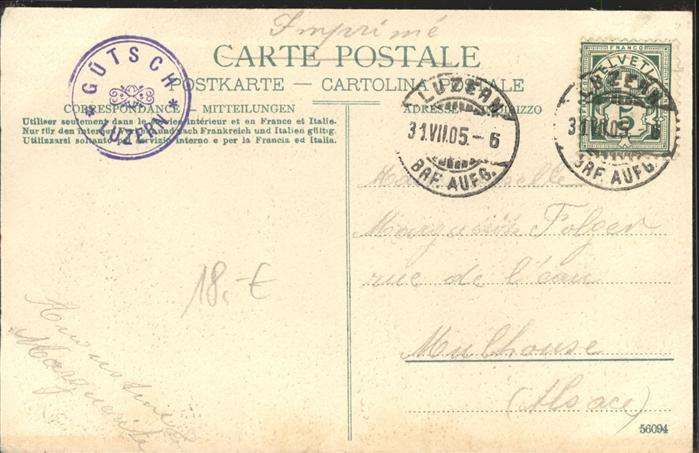 Imprimé
CARTE POSTALE
POSTKARTE — CARTOLINA POSTALE
CORRESPONDANCE — MITTEILUNGEN
ADRESSE INDIRIZZO
Utiliser seulement dans le service intérieur et en France et Italie.
Nur für den internen Dienst und nach Frankreich und Italien gültig.
Utilizzarsi soltanto pel servizio interno e per la Francia ed Italia.
* GÜTSCH *
LUZERN
LUZERN
31.VII.05.-6
BRF. AUFG.
FRANCO
HELVETIA
5
LUZERN
31.VII.05.-6
BRF. AUFG.
Mademoiselle
Folger
rue de l'eau
Mulhouse
(Alsace)
18,-€
Marguerite
56094